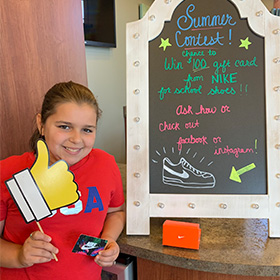 Summer
Contest!
Chance to
Win $100 gift card
from NIKE
for school shoes!!
Ask how or
check out
facebook or
instagram!
USA